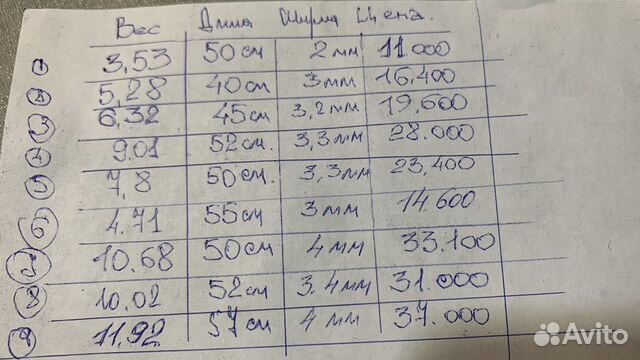 Вес Длина Ширина Цена.
1 3,53 50 см 2 мм 11 000
2 5,28 40 см 3 мм 16,400
3 6,32 45 см 3,2 мм 19,600
4 9.01 52 см. 3,3 мм 28.000
5 7,8 50 см. 3,3 мм 23,400
6 4.71 55 см 3 мм 14.600
7 10.68 50 см 4 мм 33.100
8 10.02 52 см 3.4 мм 31.000
9 11,92 57 см 4 мм 37.000
Avito